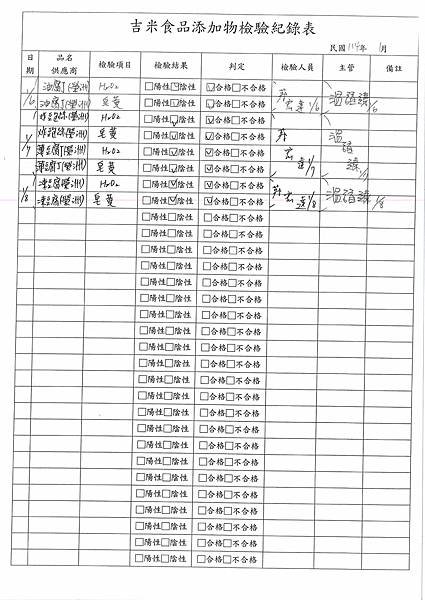 吉米食品添加物檢驗紀錄表
民國114年 1月
日期 品名 供應商 檢驗項目 檢驗結果 判定 檢驗人員 主管 備註
1/6 油腐丁(瑩洲) H2O2 □陽性☑陰性 ☑合格□不合格
油腐丁(瑩洲) 皂黃 □陽性☑陰性 ☑合格□不合格 1/6 1/6
H2O2 □陽性☑陰性 ☑合格□不合格
皂黃 □陽性☑陰性 ☑合格□不合格
1/7 H2O2 □陽性☑陰性 ☑合格□不合格
皂黃 □陽性☑陰性 ☑合格□不合格 1/7 1/7
1/8 凍豆腐(瑩洲) H2O2 □陽性☑陰性 ☑合格□不合格
凍豆腐(瑩洲) 皂黃 □陽性☑陰性 ☑合格□不合格 1/8 1/8
□陽性□陰性 □合格□不合格
□陽性□陰性 □合格□不合格
□陽性□陰性 □合格□不合格
□陽性□陰性 □合格□不合格
□陽性□陰性 □合格□不合格
□陽性□陰性 □合格□不合格
□陽性□陰性 □合格□不合格
□陽性□陰性 □合格□不合格
□陽性□陰性 □合格□不合格
□陽性□陰性 □合格□不合格
□陽性□陰性 □合格□不合格
□陽性□陰性 □合格□不合格
□陽性□陰性 □合格□不合格
□陽性□陰性 □合格□不合格
□陽性□陰性 □合格□不合格
□陽性□陰性 □合格□不合格
□陽性□陰性 □合格□不合格
□陽性□陰性 □合格□不合格
□陽性□陰性 □合格□不合格
□陽性□陰性 □合格□不合格
□陽性□陰性 □合格□不合格
□陽性□陰性 □合格□不合格